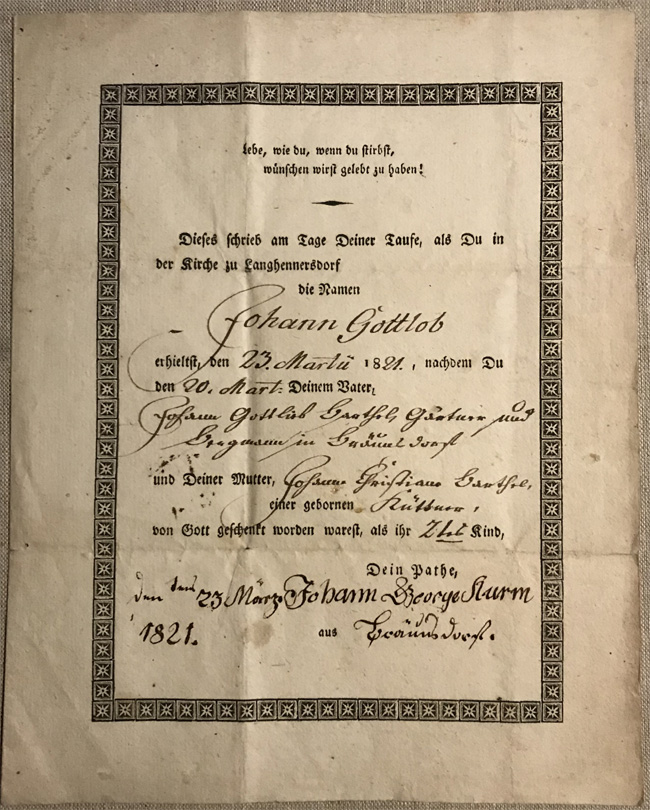 Lebe, wie du, wenn du stirbst,
wünschen wirst gelebt zu haben!
Dieses schrieb am Tage Deiner Taufe, als Du in
der Kirche zu Langhennersdorf
die Namen
Johann Gottlob
erhieltst, den 23. Martii 1821., nachdem Du
den 20. Mart: Deinem Vater,
Johann Gottlieb Barthel, Gärtner und
Bergmann in Bräunsdorf
und Deiner Mutter, Johanne Christiane Barthel,
einer gebornen Küttner,
von Gott geschenkt worden warest, als ihr 2tes Kind,
Dein Pathe,
den 23 März Johann George
1821. aus Bräunsdorf.